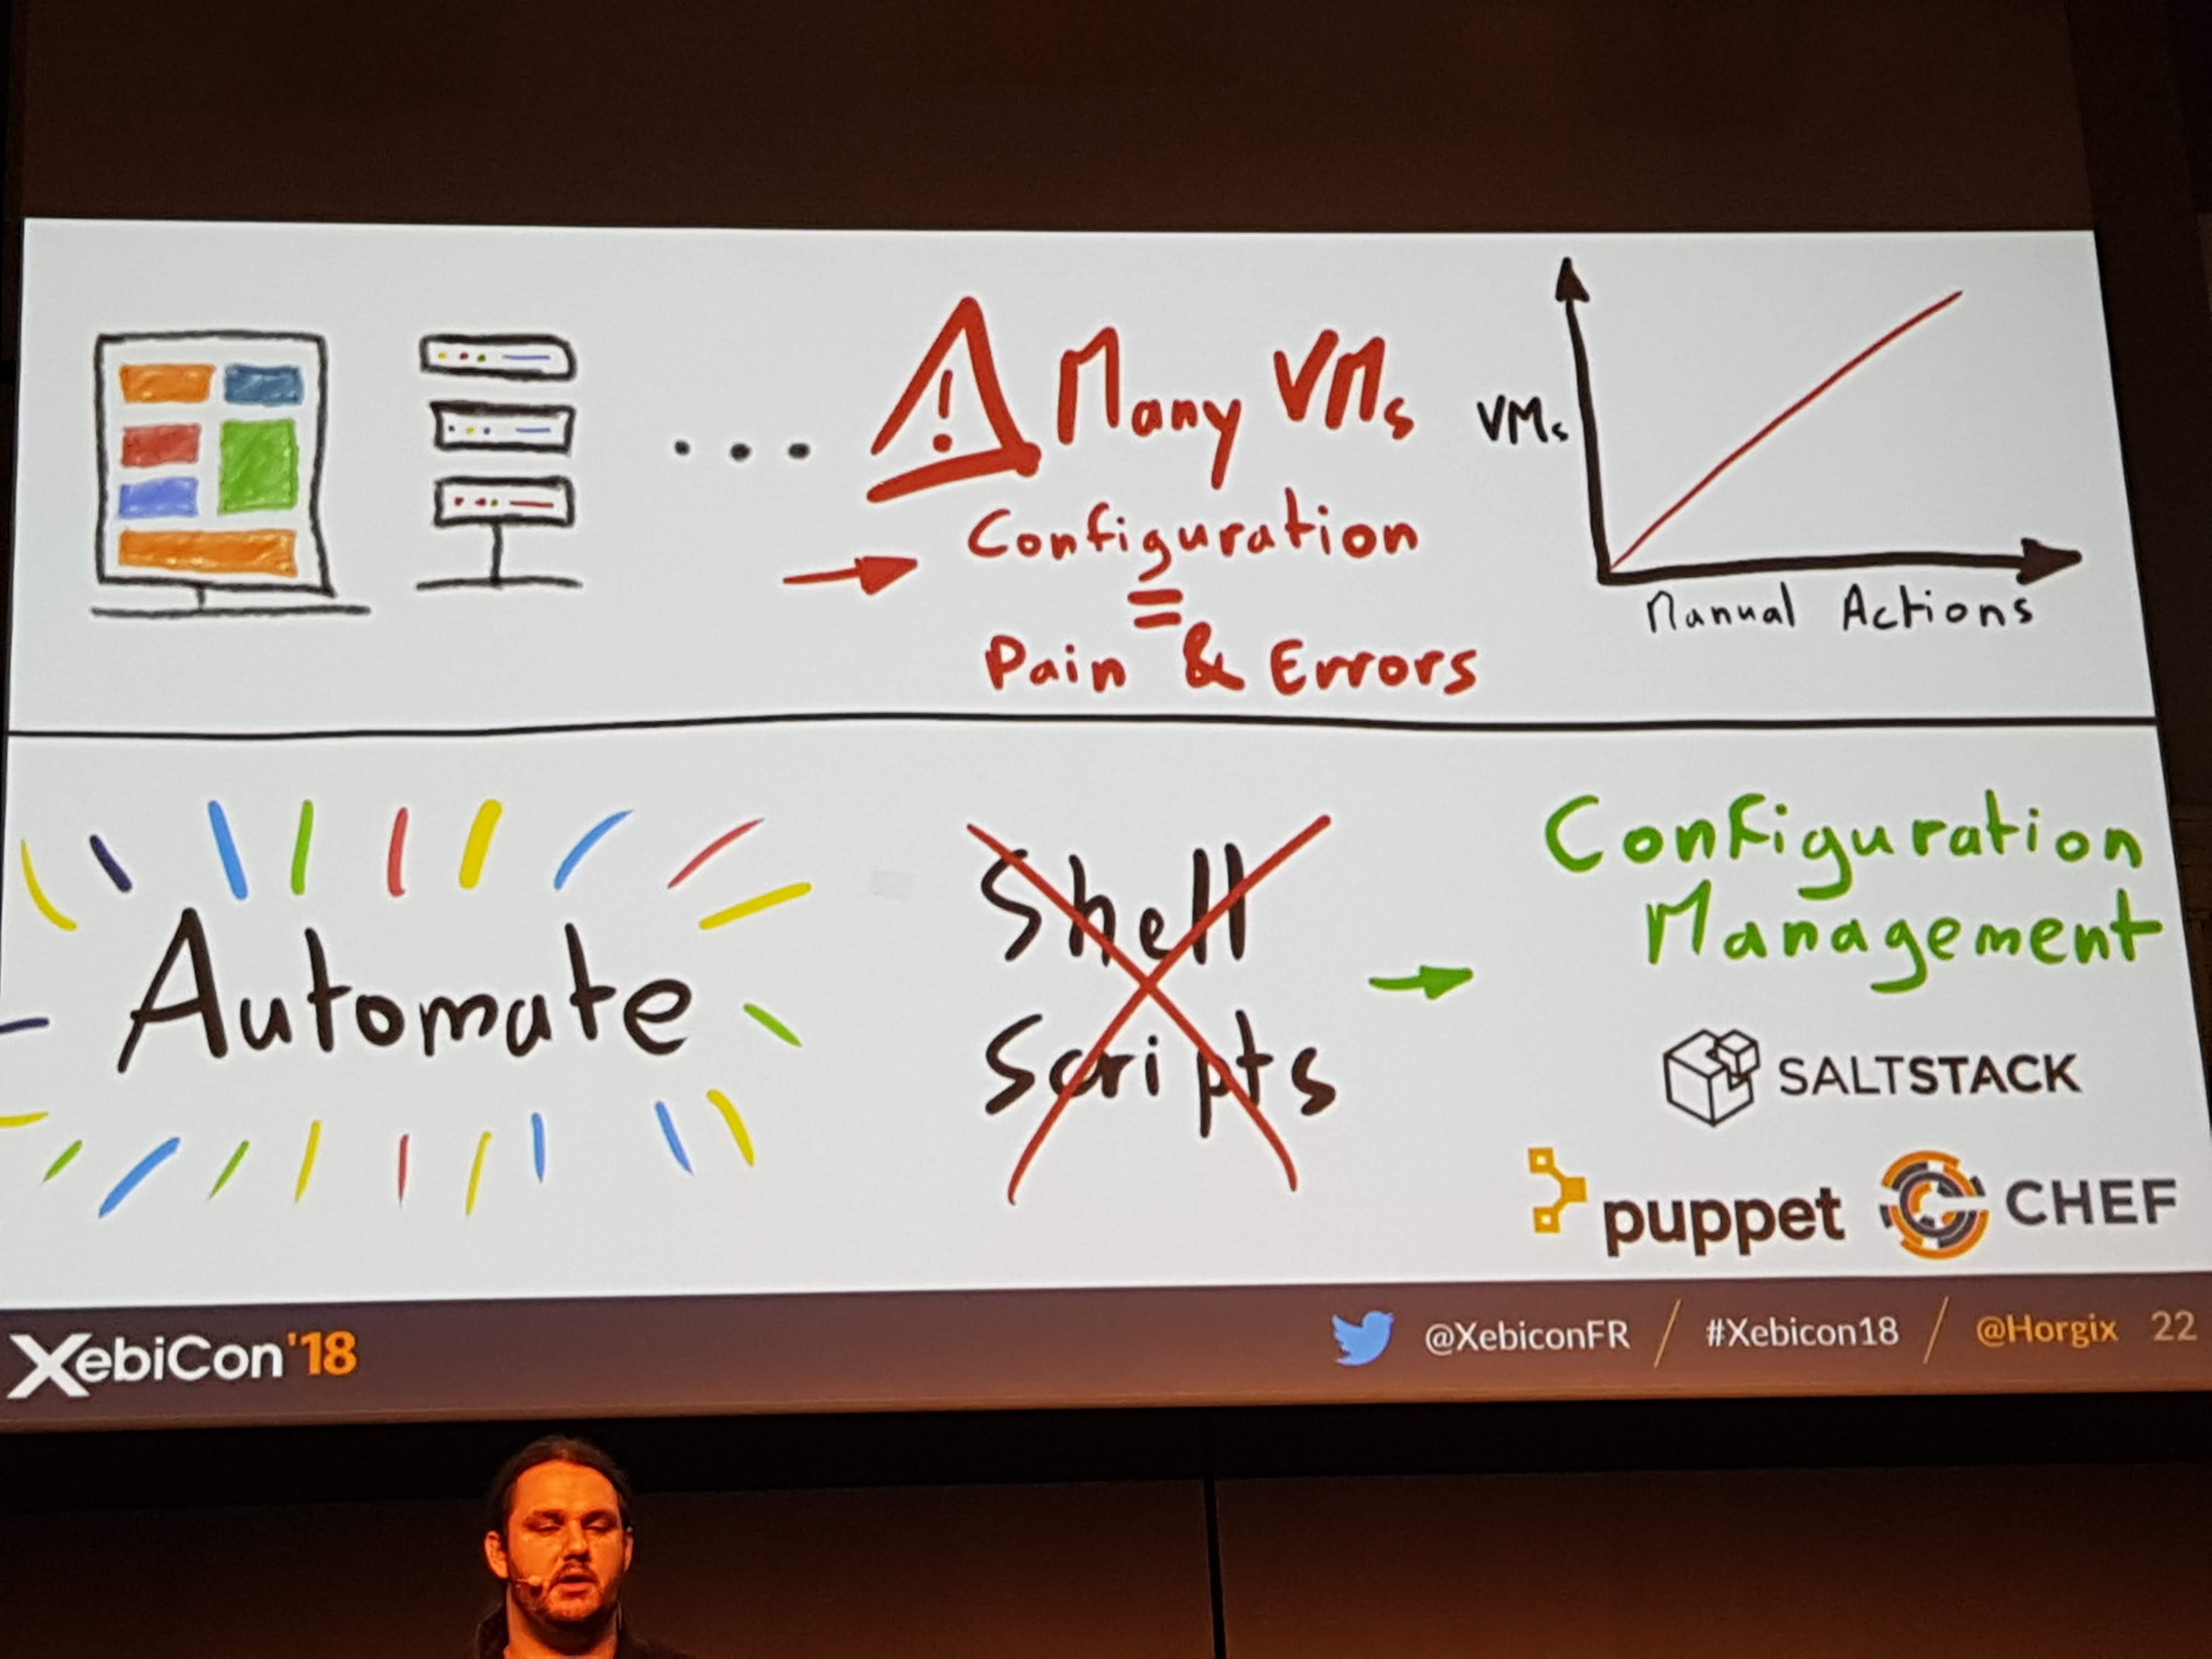 ! Many VMs
Configuration
=
Pain & Errors
VMs
Manual Actions
Automate
Shell
Scripts
Configuration
Management
SALTSTACK
puppet
CHEF
XebiCon'18
@XebiconFR / #Xebicon18 / @Horgix 22